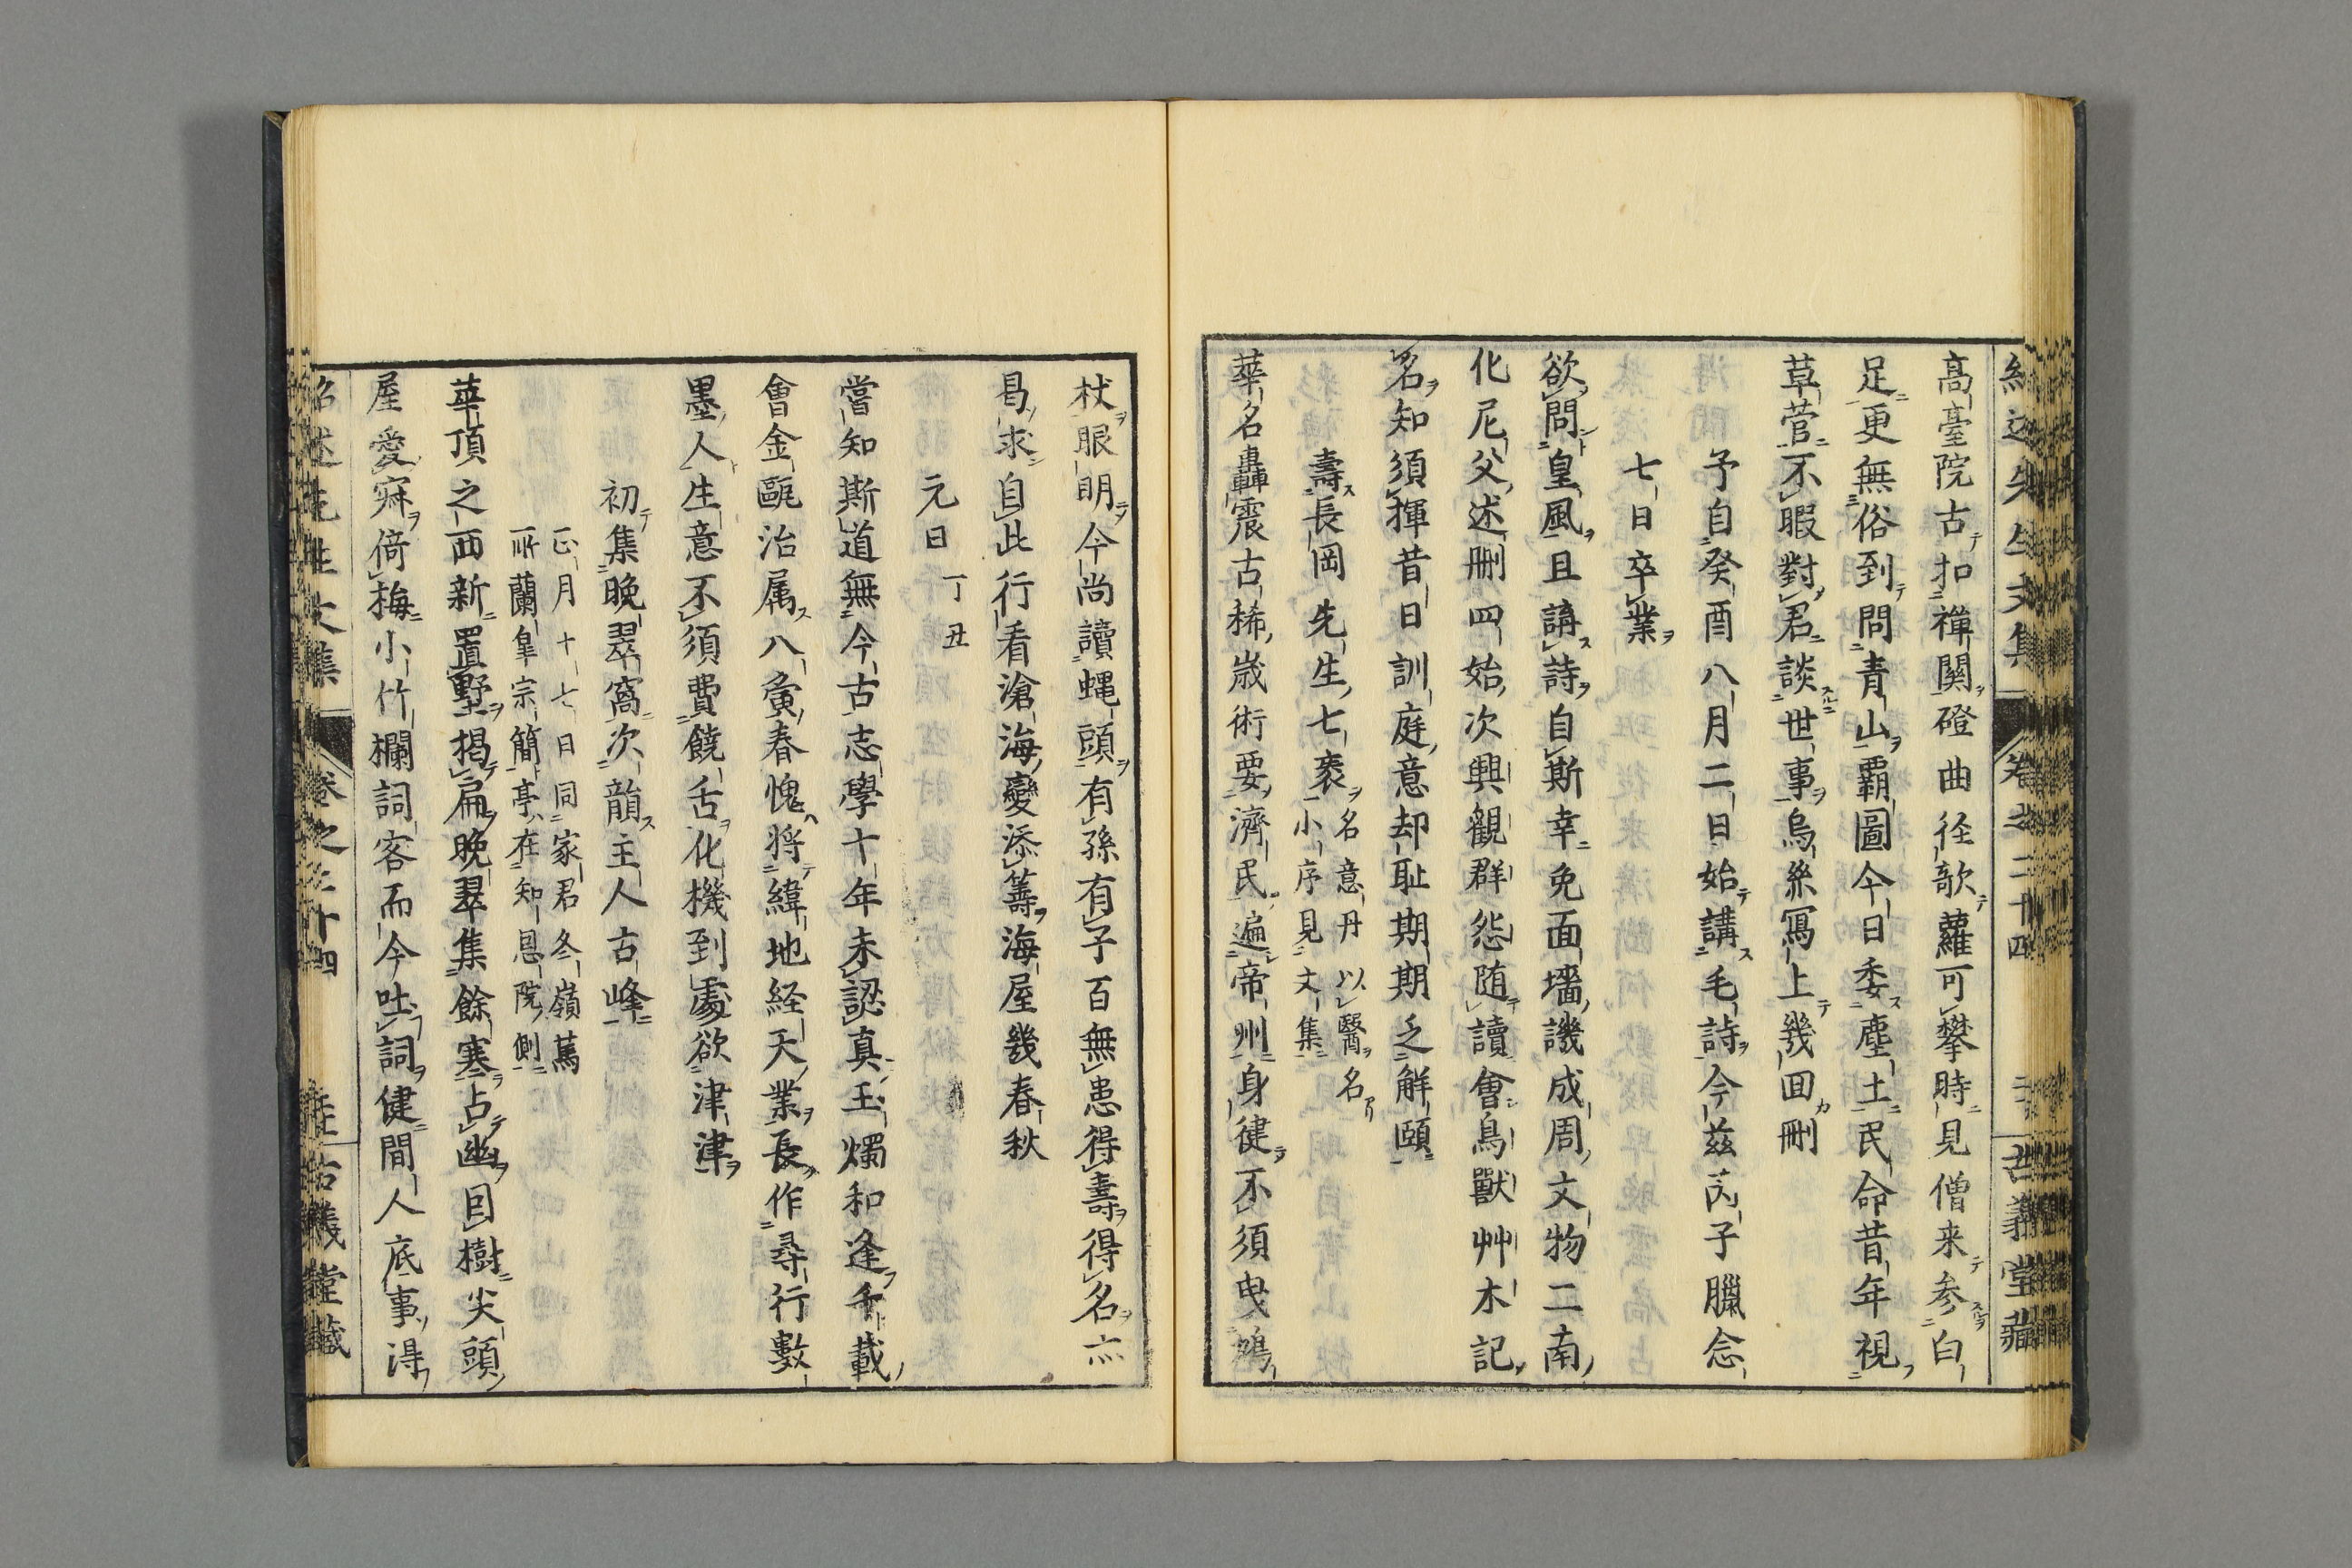 紹述先生文集 卷之二十四 古義堂藏
高臺院古扣禪關磴曲徑欹蘿可攀時見僧来参白
足更無俗到問青山霸圖今日委塵土民命昔年視
草菅不暇對君談世事烏絲冩上幾回刪
予自癸酉八月二日始講毛詩今茲丙子臘念
七日卒業
欲問皇風且講詩自斯幸免面墻譏成周文物二南
化尼父述刪四始次興觀群怨随讀會鳥獸艸木記
名知須揮昔日訓庭意却耻期期乏解頤
壽長岡先生七袠
名意丹以醫名
小序見文集
華名轟震古稀歲術要濟民遍帝州身健不須曳鳩
杖眼明今尚讀蝿頭有孫有子百無患得壽得名亦
曷求自此行看滄海變添籌海屋幾春秋
元日 丁丑
嘗知斯道無今古志學十年未認真玉燭和逢千載
會金甌治属八夤春愧將緯地経天業長作尋行數
墨人生意不須費饒舌化機到處欲津津
初集晩翠窩次韻主人古峰
正月十七日同家君冬嶺蒿
所蘭皐宗簡亭在知恩院側
華頂之西新置墅揭扁晩翠集餘寒占幽目樹尖頭
屋愛寐倚梅小竹欄詞客而今吐詞健間人底事淂
紹述先生文集 卷之二十四 古義堂藏